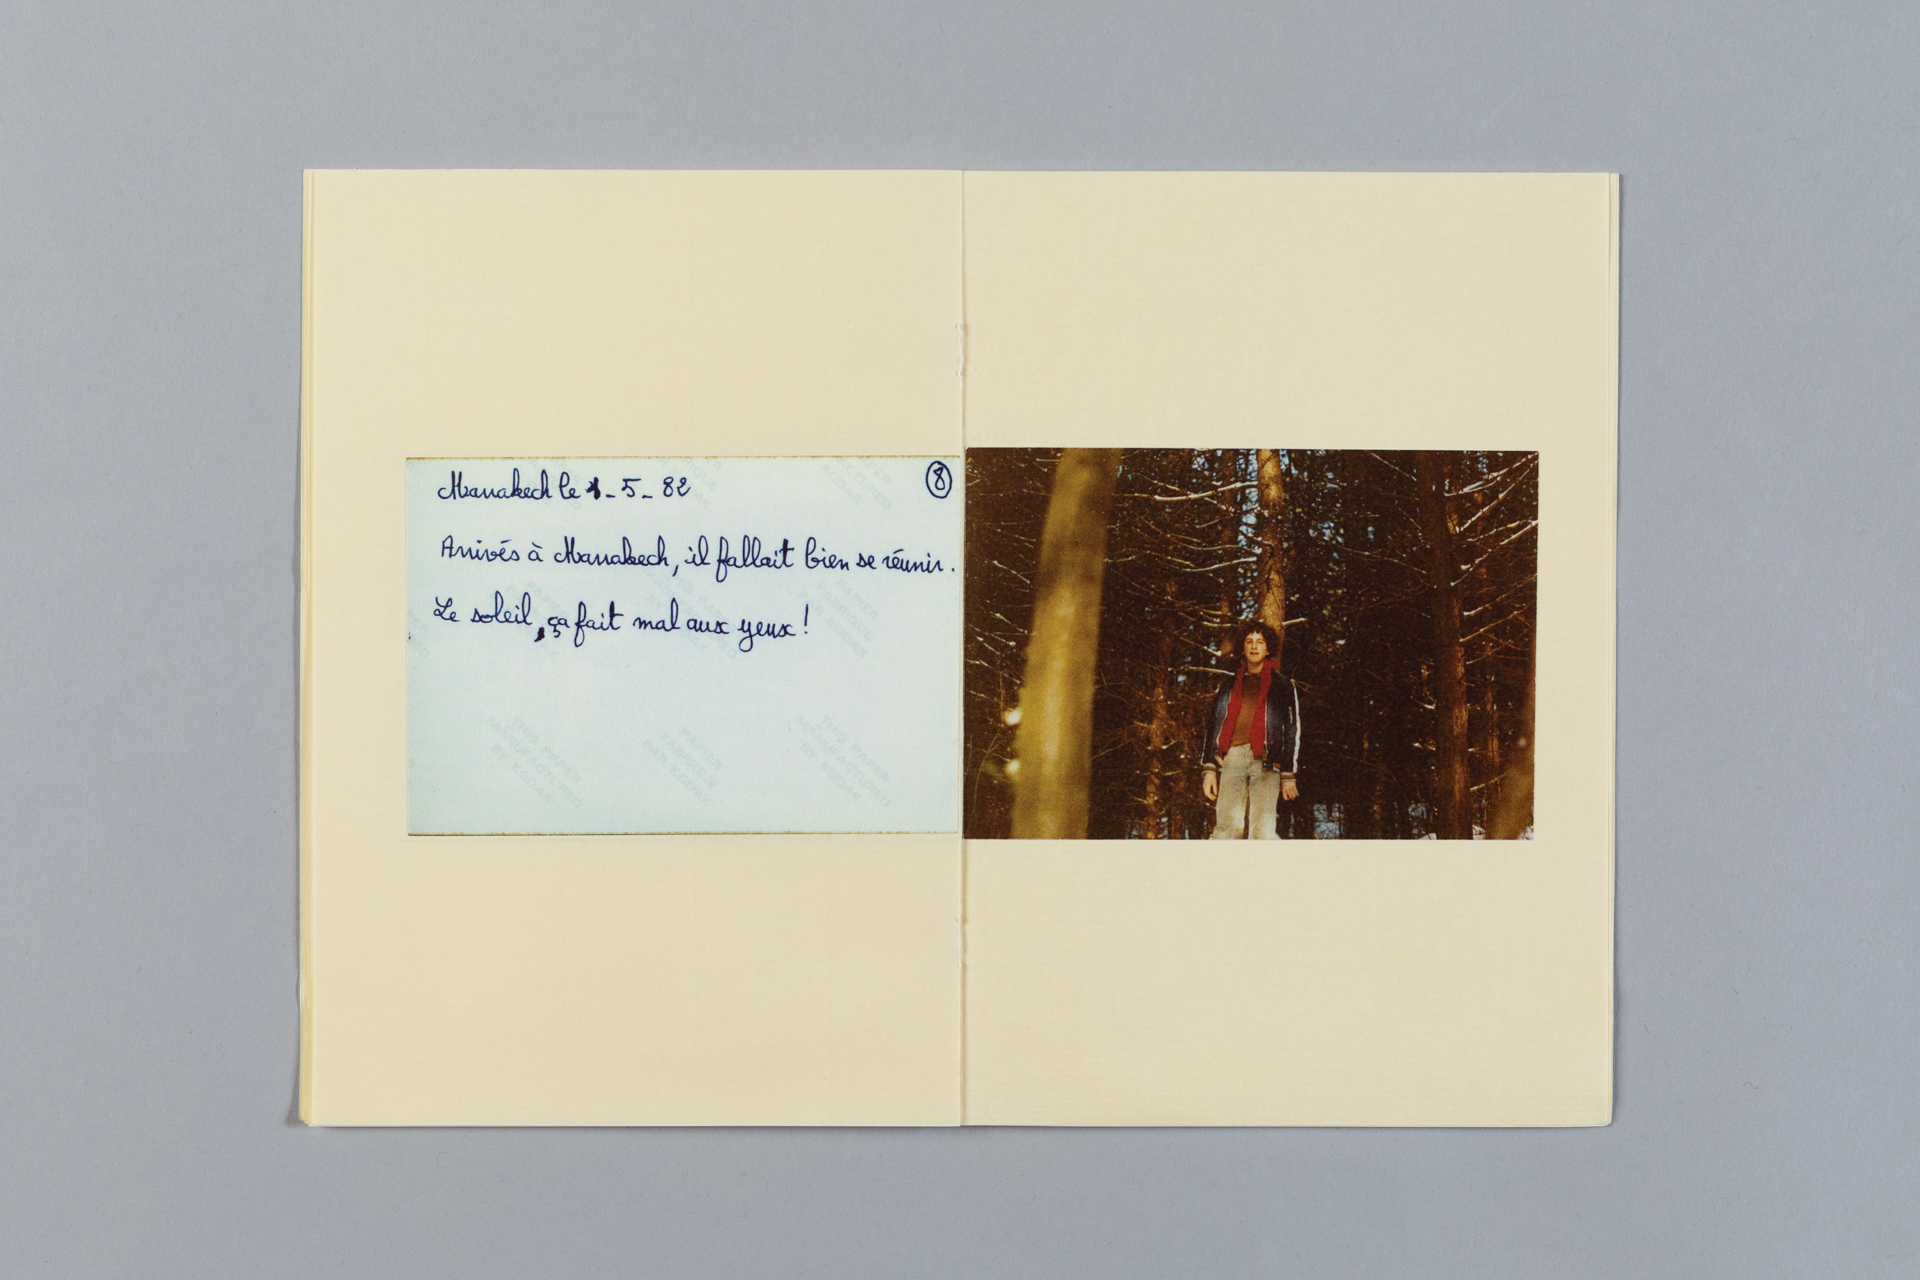 Marrakech le 1-5-82
8
Arrivés à Marrakech, il fallait bien se réunir.
Le soleil, ça fait mal aux yeux !
PAPIER
FABRIQUÉ
PAR KODAK
THIS PAPER
MANUFACTURED
BY KODAK
PAPIER
FABRIQUE
PAR KODAK
THIS PAPER
MANUFACTURED
BY KODAK